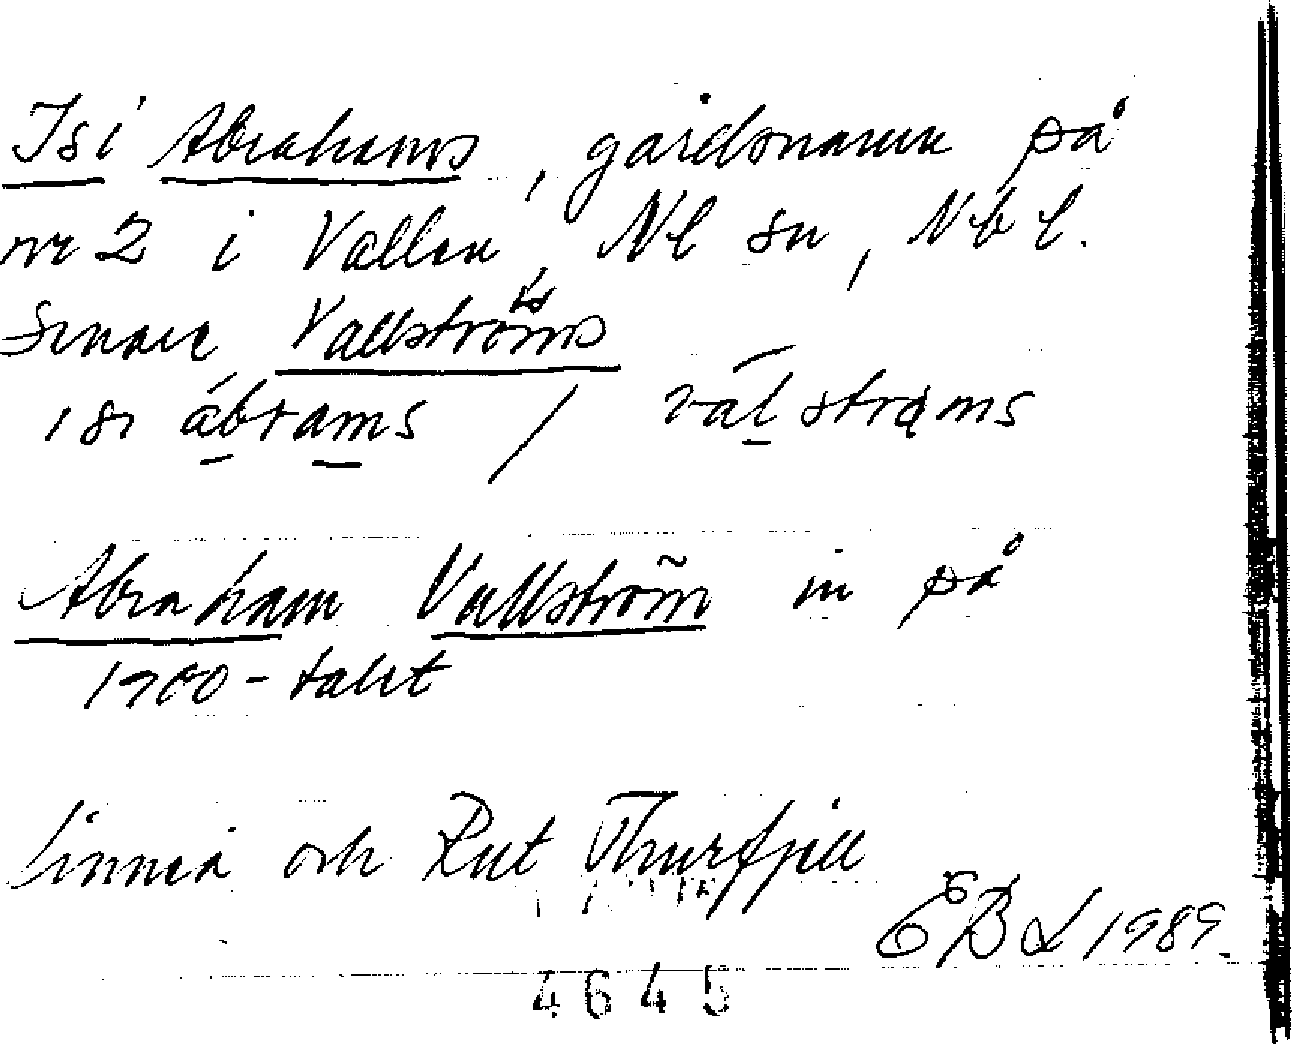 Isi Abrahams, gårdsnamn på
nr 2 i Vallen, Nl sn, Vb l.
Senare Vallströms
isi ábrams / válstrøms
Abraham Vallström in på
1900-talet
Linnea och Rut Thurfjell
EBL 1989.
4645